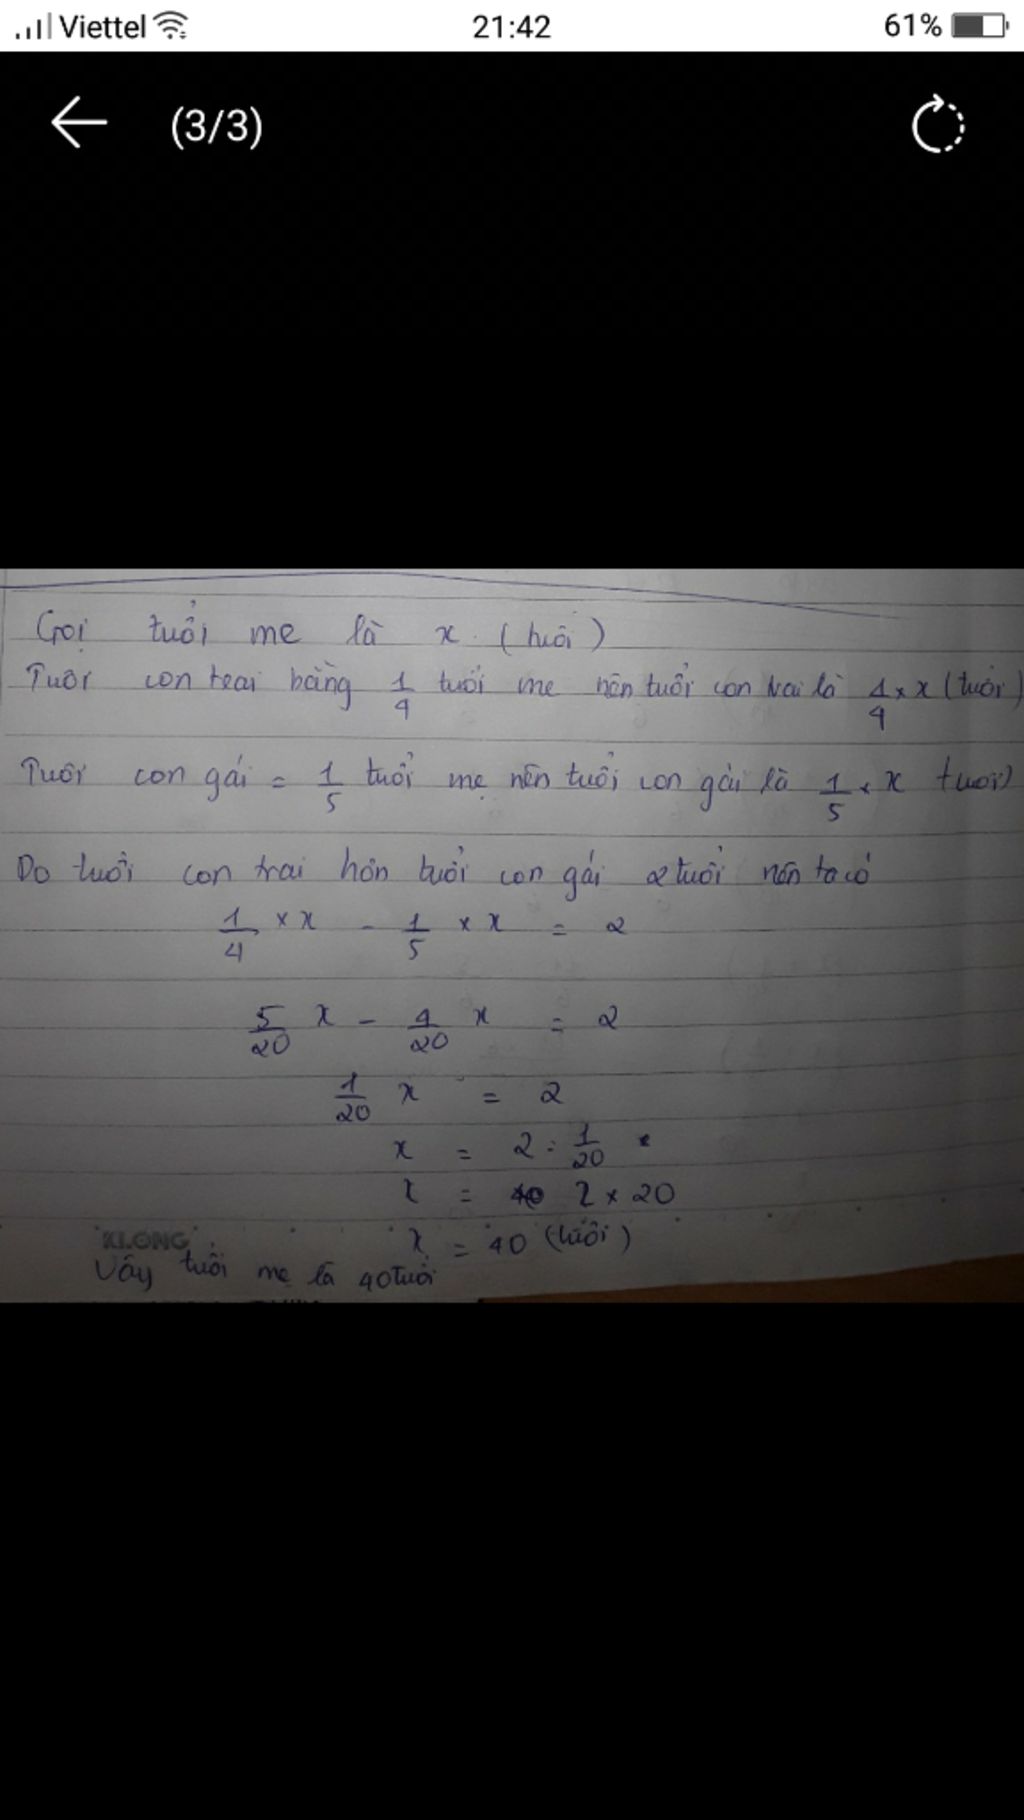 Viettel 21:42 61%
(3/3)
Gọi tuổi mẹ là x (tuổi)
Tuổi con trai bằng 1/4 tuổi mẹ nên tuổi con trai là 1/4 × x (tuổi)
Tuổi con gái = 1/5 tuổi mẹ nên tuổi con gái là 1/5 × x tuổi)
Do tuổi con trai hơn tuổi con gái 2 tuổi nên ta có
1/4 × x - 1/5 × x = 2
5/20 x - 4/20 x = 2
1/20 x = 2
x = 2 : 1/20
x = 2 × 20
x = 40 (tuổi)
KLONG
Vậy tuổi mẹ là 40 tuổi